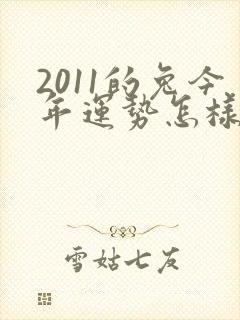 2011的兔今
年運勢怎樣
雪姑七友